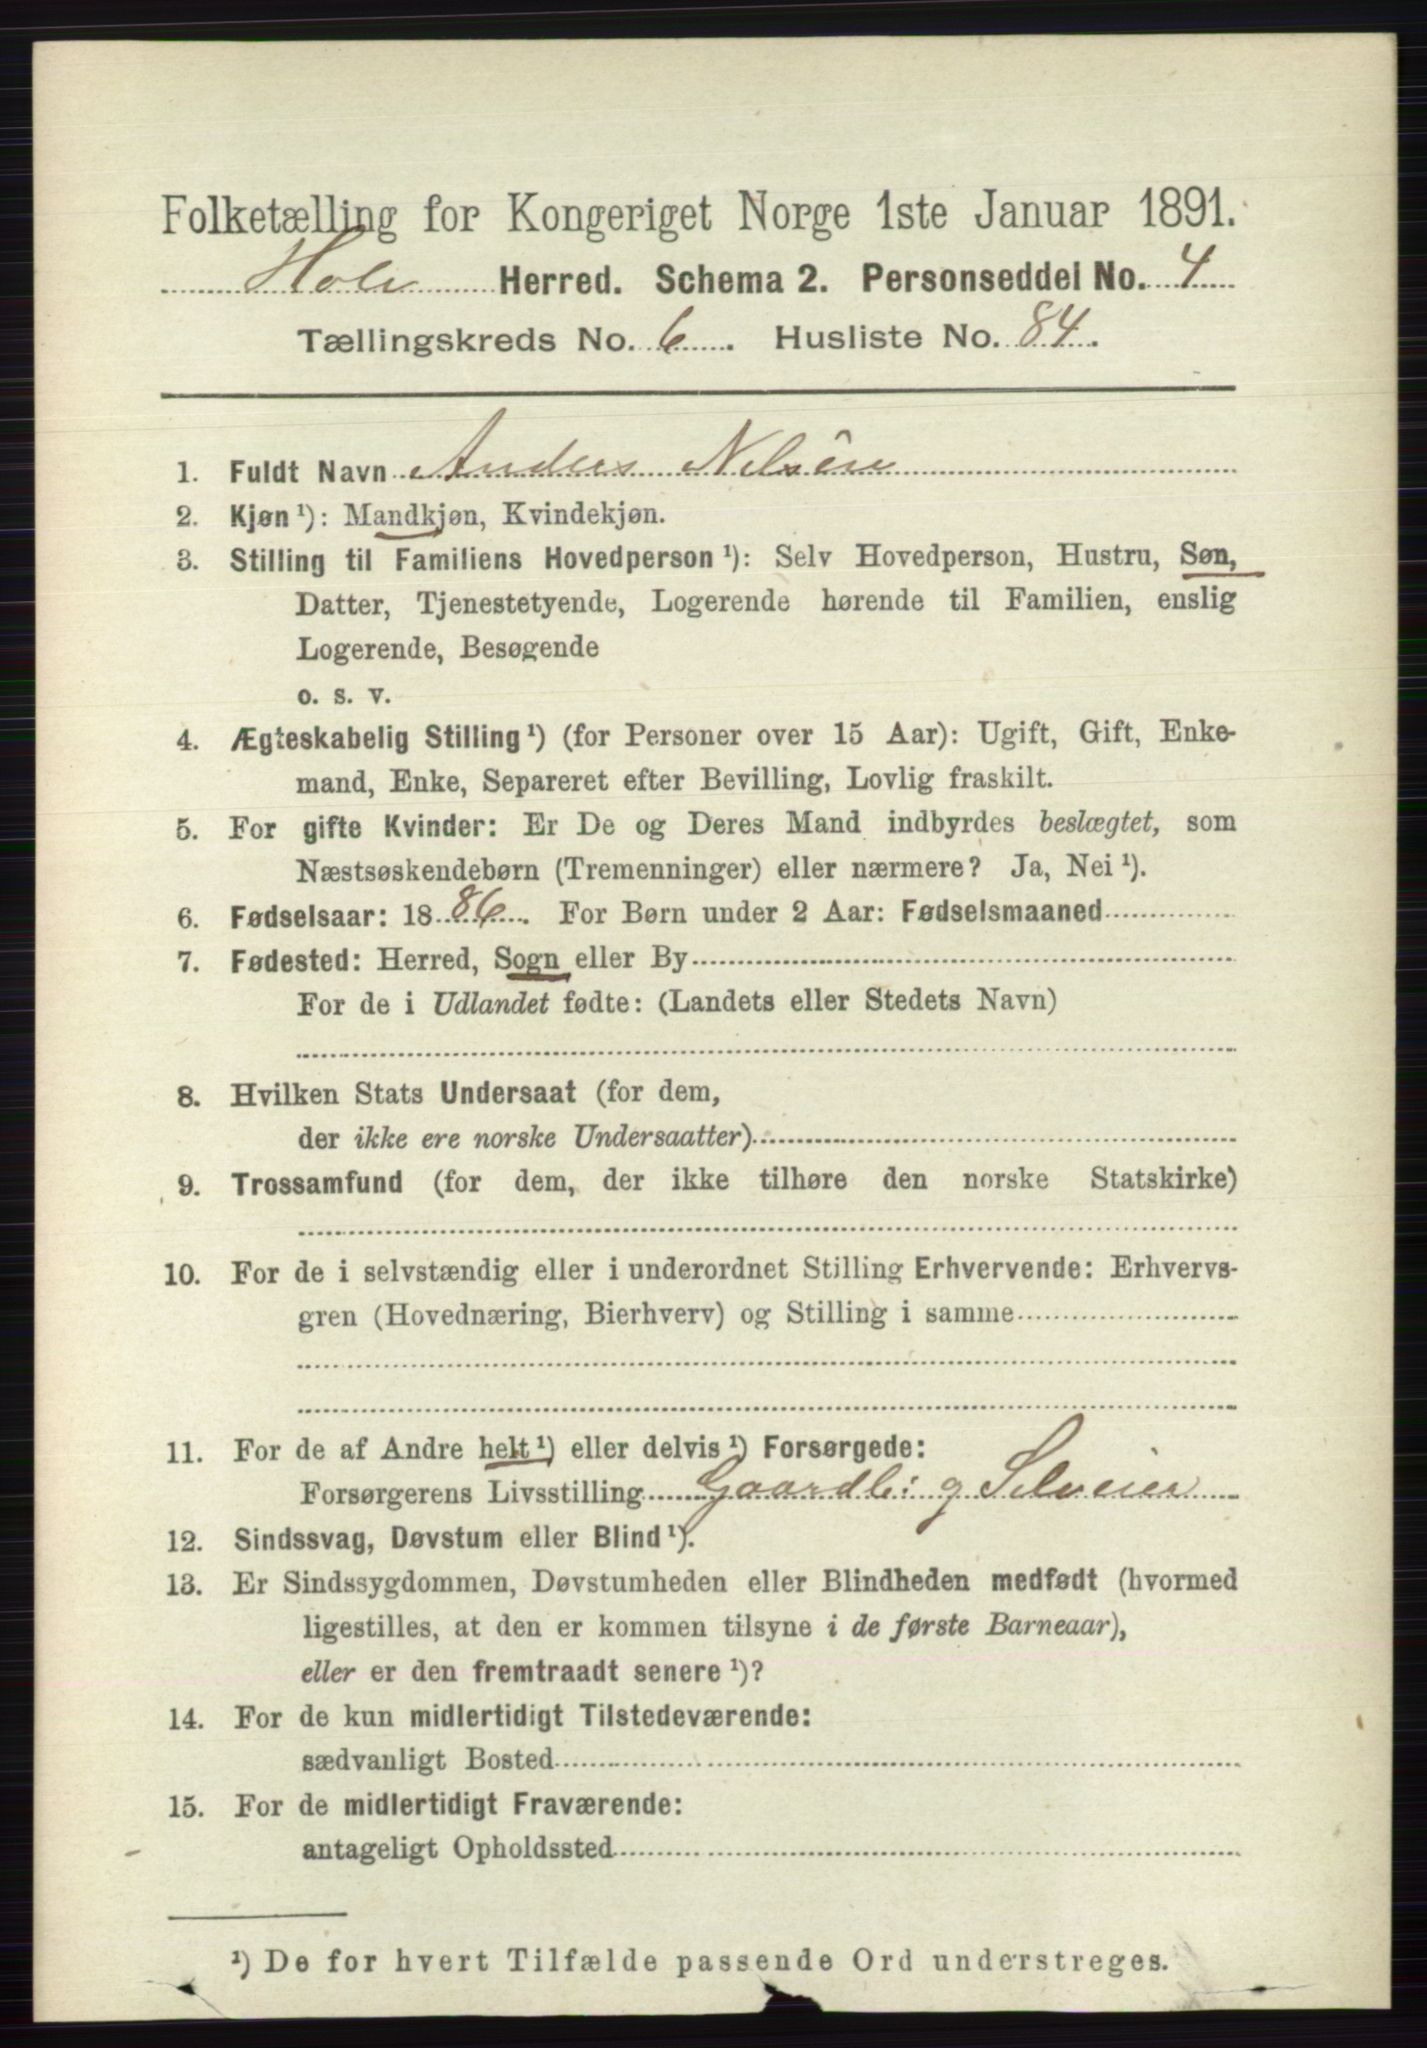 Folketælling for Kongeriget Norge 1ste Januar 1891.
Hole Herred. Schema 2. Personseddel No. 4
Tællingskreds No. 6. Husliste No. 84.
1. Fuldt Navn Anders Nelsen
2. Kjøn ¹): Mandkjøn, Kvindekjøn.
3. Stilling til Familiens Hovedperson ¹): Selv Hovedperson, Hustru, Søn,
Datter, Tjenestetyende, Logerende hørende til Familien, enslig
Logerende, Besøgende
o. s. v.
4. Ægteskabelig Stilling ¹) (for Personer over 15 Aar): Ugift, Gift, Enke-
mand, Enke, Separeret efter Bevilling, Lovlig fraskilt.
5. For gifte Kvinder: Er De og Deres Mand indbyrdes beslægtet, som
Næstsøskendebørn (Tremenninger) eller nærmere? Ja, Nei ¹).
6. Fødselsaar: 1886. For Børn under 2 Aar: Fødselsmaaned
7. Fødested: Herred, Sogn eller By
For de i Udlandet fødte: (Landets eller Stedets Navn)
8. Hvilken Stats Undersaat (for dem,
der ikke ere norske Undersaatter)
9. Trossamfund (for dem, der ikke tilhøre den norske Statskirke)
10. For de i selvstændig eller i underordnet Stilling Erhvervende: Erhvervs-
gren (Hovednæring, Bierhverv) og Stilling i samme
11. For de af Andre helt ¹) eller delvis ¹) Forsørgede:
Forsørgerens Livsstilling Gaardb: g Selveier
12. Sindssvag, Døvstum eller Blind ¹).
13. Er Sindssygdommen, Døvstumheden eller Blindheden medfødt (hvormed
ligestilles, at den er kommen tilsyne i de første Barneaar),
eller er den fremtraadt senere ¹)?
14. For de kun midlertidigt Tilstedeværende:
sædvanligt Bosted
15. For de midlertidigt Fraværende:
antageligt Opholdssted
¹) De for hvert Tilfælde passende Ord understreges.